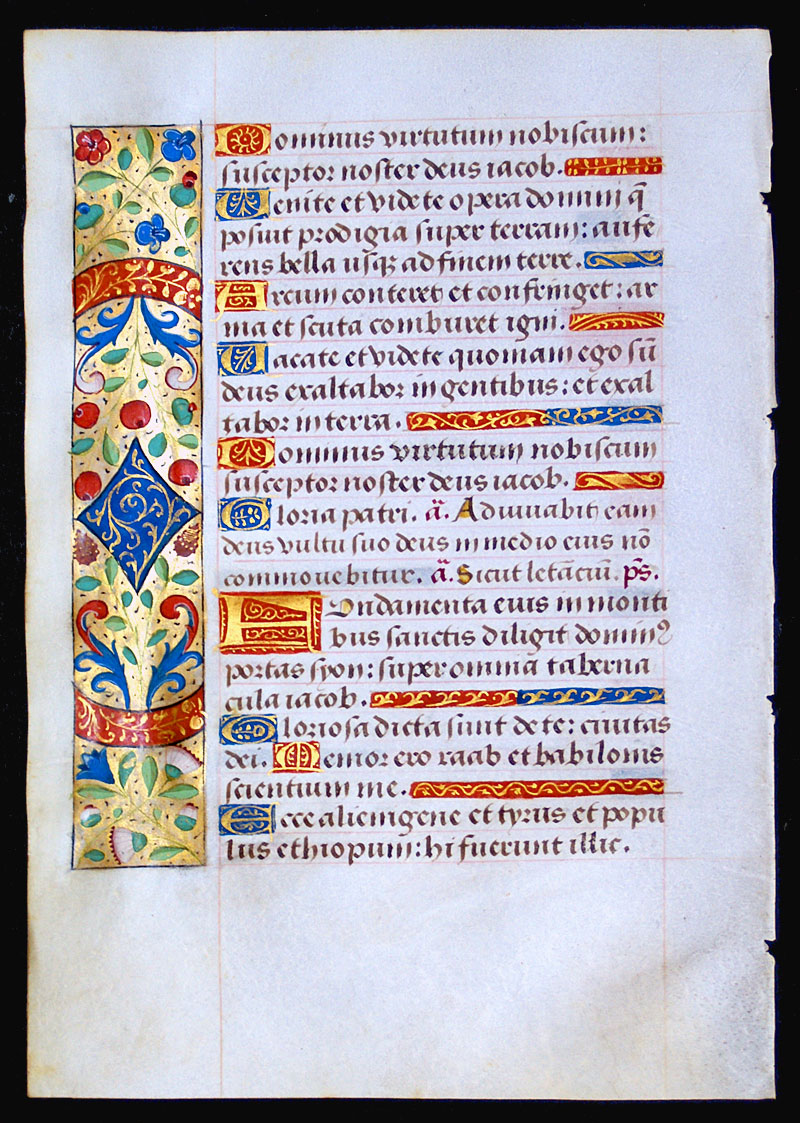 Dominus virtutum nobiscum:
susceptor noster deus iacob.
Venite et videte opera domini q̄
posuit prodigia super terram: aufe
rens bella usq; ad finem terre.
Arcum conteret et confringet: ar
ma et scuta comburet igni.
Vacate et videte quoniam ego sū
deus exaltabor in gentibus: et exal
tabor in terra.
Dominus virtutum nobiscum
susceptor noster deus iacob.
Gloria patri. a. Adiuvabit eam
deus vultu suo deus in medio eius nō
commovebitur. a. Sicut letāciū. ps.
Fundamenta eius in monti
bus sanctis diligit domin⁹
portas syon: super omnia taberna
cula iacob.
Gloriosa dicta sunt de te: civitas
dei. Memor ero raab et babilonis
scientium me.
Ecce alienigene et tyrus et popu
lus ethiopum: hi fuerunt illic.